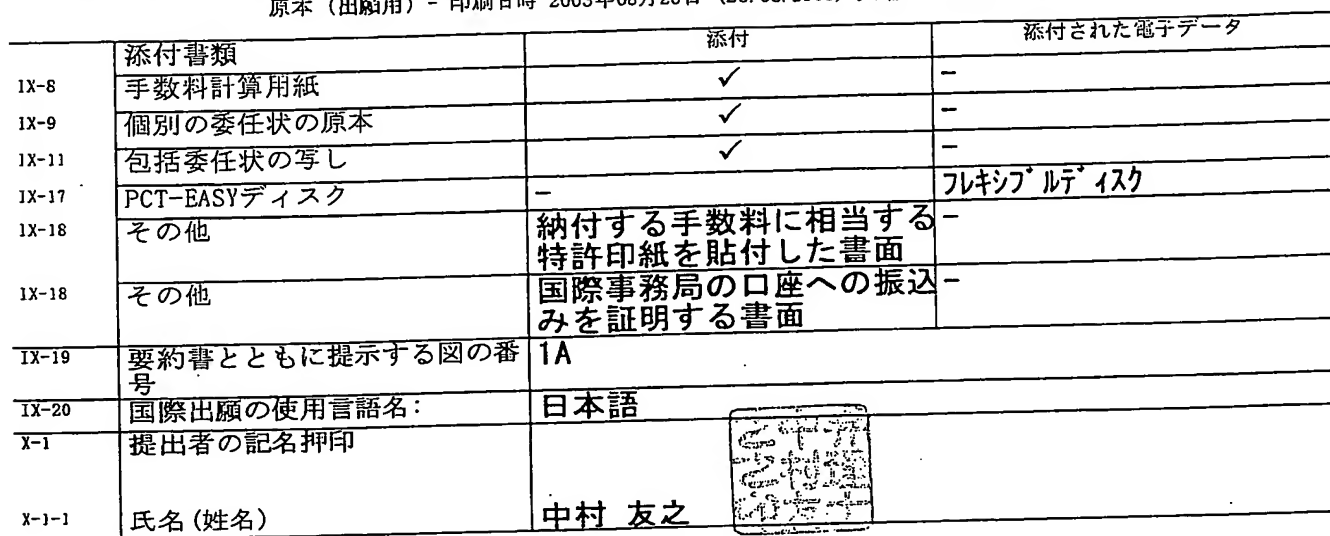 原本（出願用）- 印刷日時 2003年08月
添付書類 添付 添付された電子データ
IX-8 手数料計算用紙 ✓ -
IX-9 個別の委任状の原本 ✓ -
IX-11 包括委任状の写し ✓ -
IX-17 PCT-EASYディスク - フレキシブルディスク
IX-18 その他 納付する手数料に相当する -
特許印紙を貼付した書面
IX-18 その他 国際事務局の口座への振込 -
みを証明する書面
IX-19 要約書とともに提示する図の番 1A
号
IX-20 国際出願の使用言語名: 日本語
X-1 提出者の記名押印
X-1-1 氏名(姓名) 中村 友之